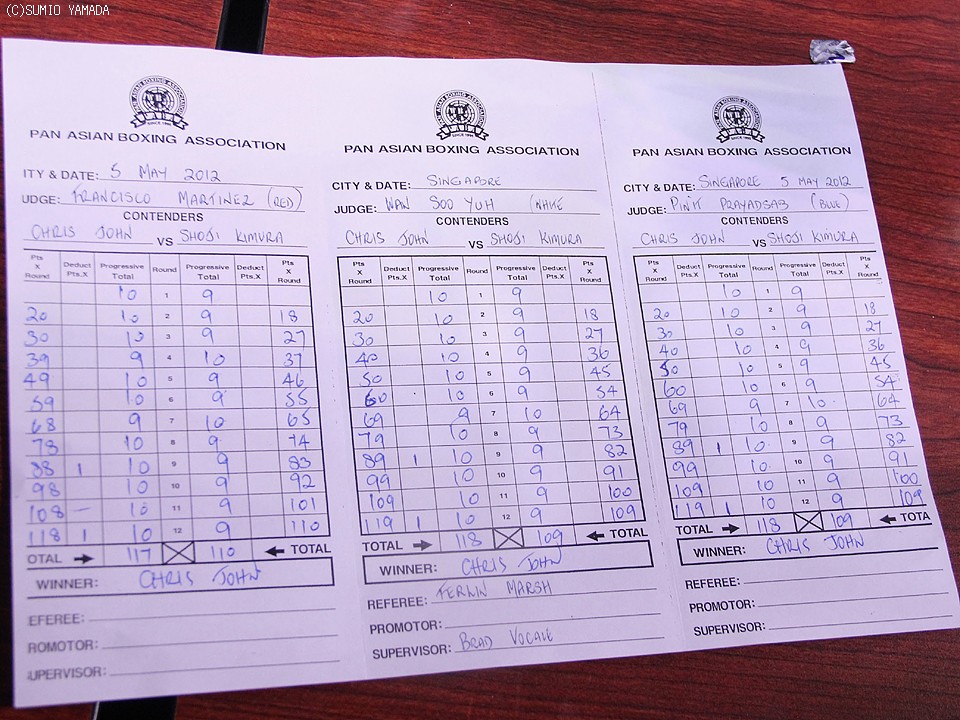 (C)SUMIO YAMADA
PAN ASIAN BOXING ASSOCIATION
SINCE 1985
PAN ASIAN BOXING ASSOCIATION
ITY & DATE: 5 MAY 2012
UDGE: FRANCISCO MARTINEZ (RED)
CONTENDERS
CHRIS JOHN VS SHOJI KIMURA
Pts X Round Deduct Pts.X Progressive Total Round Progressive Total Deduct Pts. Pts X Round
10 1 9
20 10 2 9 18
30 10 3 9 27
39 9 4 10 37
49 10 5 9 46
59 10 6 9 55
68 9 7 10 65
78 10 8 9 74
88 1 10 9 9 83
98 10 10 9 92
108 – 10 11 9 101
118 1 10 12 9 110
OTAL → 117 110 ← TOTAL
WINNER: CHRIS JOHN
EFEREE:
ROMOTOR:
UPERVISOR:
PAN ASIAN BOXING ASSOCIATION
PAN ASIAN BOXING ASSOCIATION
CITY & DATE: SINGAPORE
JUDGE: WAN SOO YUH (WHITE
CONTENDERS
CHRIS JOHN VS SHOJI KIMURA
Pts X Round Deduct Pts.X Progressive Total Round Progressive Total Deduct Pts.X Pts X Round
10 1 9
20 10 2 9 18
30 10 3 9 27
40 10 4 9 36
50 10 5 9 45
60 10 6 9 54
69 9 7 10 64
79 10 8 9 73
89 1 10 9 9 82
99 10 10 9 91
109 10 11 9 100
119 1 10 12 9 109
TOTAL → 118 109 ← TOTAL
WINNER: CHRIS JOHN
REFEREE: FERLIN MARSH
PROMOTOR:
SUPERVISOR: BRAD VOCALE
PAN ASIAN BOXING ASSOCIATION
PAN ASIAN BOXING ASSOCIATION
CITY & DATE: SINGAPORE 5 MAY 2012
JUDGE: PINIT PRAYADSAB (BLUE)
CONTENDERS
CHRIS JOHN VS SHOJI KIMURA
Pts X Round Deduct Pts.X Progressive Total Round Progressive Total Deduct Pts.X Pts X Round
10 1 9
20 10 2 9 18
30 10 3 9 27
40 10 4 9 36
50 10 5 9 45
60 10 6 9 54
69 9 7 10 64
79 10 8 9 73
89 1 10 9 9 82
99 10 10 9 91
109 10 11 9 100
119 1 10 12 9 109
TOTAL → 118 109 ← TOTA
WINNER: CHRIS JOHN
REFEREE:
PROMOTOR:
SUPERVISOR: